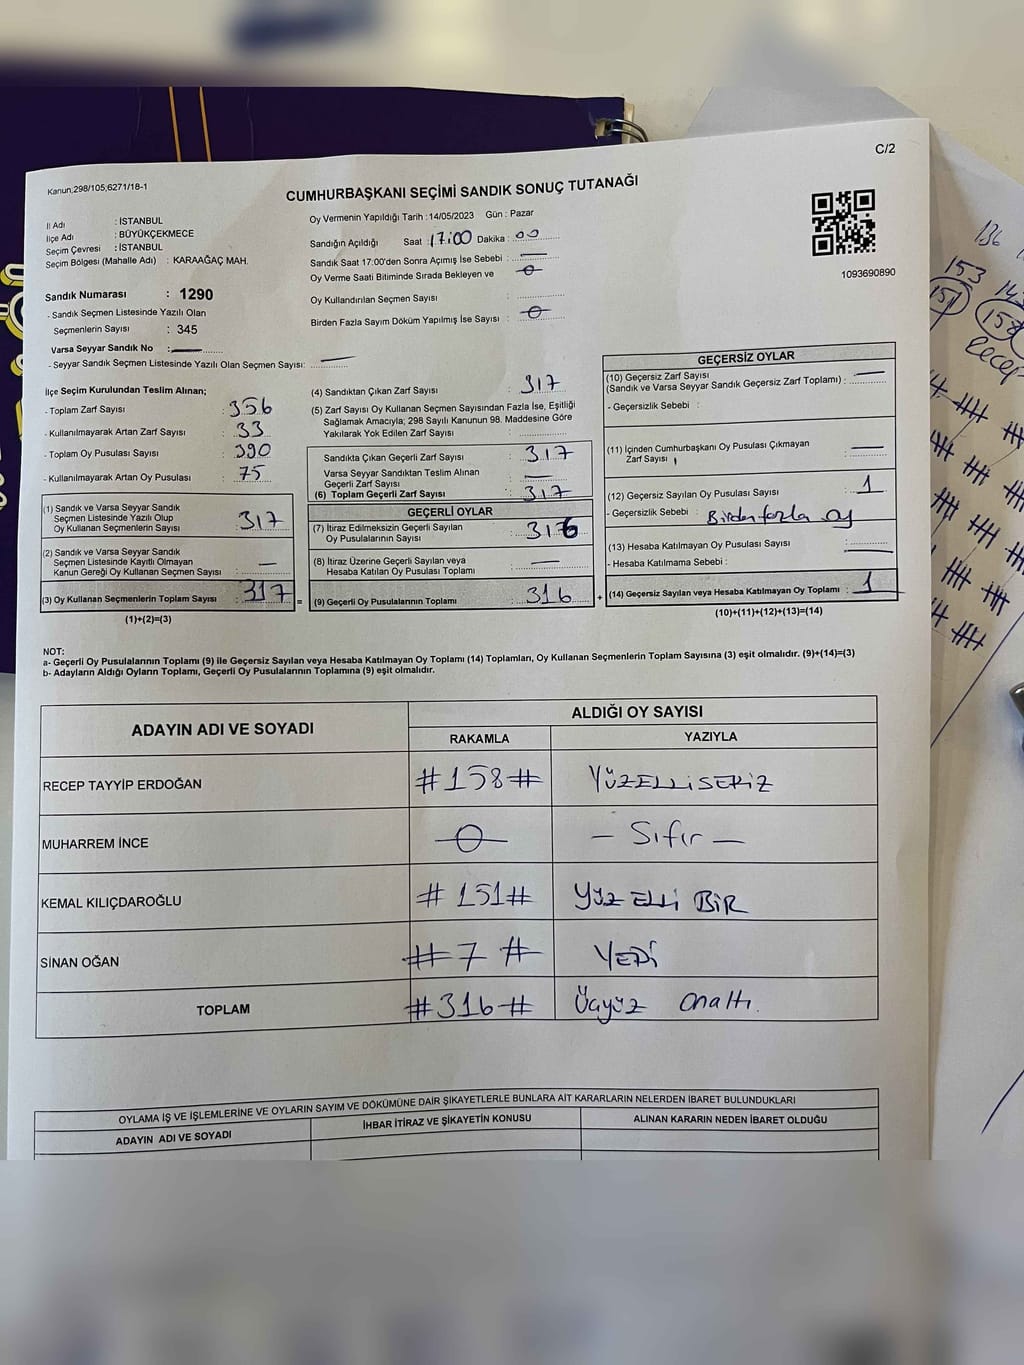 C/2
Kanun;298/105;6271/18-1
CUMHURBAŞKANI SEÇİMİ SANDIK SONUÇ TUTANAĞI
İl Adı : İSTANBUL
İlçe Adı : BÜYÜKÇEKMECE
Seçim Çevresi : İSTANBUL
Seçim Bölgesi (Mahalle Adı) : KARAAĞAÇ MAH.
Sandık Numarası : 1290
- Sandık Seçmen Listesinde Yazılı Olan
Seçmenlerin Sayısı : 345
Varsa Seyyar Sandık No :
- Seyyar Sandık Seçmen Listesinde Yazılı Olan Seçmen Sayısı:
Oy Vermenin Yapıldığı Tarih :14/05/2023 Gün : Pazar
Sandığın Açıldığı Saat 17:00 Dakika : 00
Sandık Saat 17:00'den Sonra Açımış İse Sebebi :
Oy Verme Saati Bitiminde Sırada Bekleyen ve : 0
Oy Kullandırılan Seçmen Sayısı :
Birden Fazla Sayım Döküm Yapılmış İse Sayısı : 0
1093690890
İlçe Seçim Kurulundan Teslim Alınan;
- Toplam Zarf Sayısı : 356
- Kullanılmayarak Artan Zarf Sayısı : 33
- Toplam Oy Pusulası Sayısı : 390
- Kullanılmayarak Artan Oy Pusulası : 75
(1) Sandık ve Varsa Seyyar Sandık
Seçmen Listesinde Yazılı Olup
Oy Kullanan Seçmenlerin Sayısı : 317
(2) Sandık ve Varsa Seyyar Sandık
Seçmen Listesinde Kayıtlı Olmayan
Kanun Gereği Oy Kullanan Seçmen Sayısı : —
(3) Oy Kullanan Seçmenlerin Toplam Sayısı : 317 =
(1)+(2)=(3)
(4) Sandıktan Çıkan Zarf Sayısı : 317
(5) Zarf Sayısı Oy Kullanan Seçmen Sayısından Fazla İse, Eşitliği
Sağlamak Amacıyla; 298 Sayılı Kanunun 98. Maddesine Göre
Yakılarak Yok Edilen Zarf Sayısı :
Sandıkta Çıkan Geçerli Zarf Sayısı : 317
Varsa Seyyar Sandıktan Teslim Alınan
Geçerli Zarf Sayısı : —
(6) Toplam Geçerli Zarf Sayısı : 317
GEÇERLİ OYLAR
(7) İtiraz Edilmeksizin Geçerli Sayılan
Oy Pusulalarının Sayısı : 316
(8) İtiraz Üzerine Geçerli Sayılan veya
Hesaba Katılan Oy Pusulası Toplamı : —
(9) Geçerli Oy Pusulalarının Toplamı : 316 +
GEÇERSİZ OYLAR
(10) Geçersiz Zarf Sayısı
(Sandık ve Varsa Seyyar Sandık Geçersiz Zarf Toplamı) : —
- Geçersizlik Sebebi :
(11) İçinden Cumhurbaşkanı Oy Pusulası Çıkmayan
Zarf Sayısı : —
(12) Geçersiz Sayılan Oy Pusulası Sayısı : 1
- Geçersizlik Sebebi : Birden fazla oy
(13) Hesaba Katılmayan Oy Pusulası Sayısı : —
- Hesaba Katılmama Sebebi :
(14) Geçersiz Sayılan veya Hesaba Katılmayan Oy Toplamı : 1
(10)+(11)+(12)+(13)=(14)
NOT:
a- Geçerli Oy Pusulalarının Toplamı (9) ile Geçersiz Sayılan veya Hesaba Katılmayan Oy Toplamı (14) Toplamları, Oy Kullanan Seçmenlerin Toplam Sayısına (3) eşit olmalıdır. (9)+(14)=(3)
b- Adayların Aldığı Oyların Toplamı, Geçerli Oy Pusulalarının Toplamına (9) eşit olmalıdır.
ADAYIN ADI VE SOYADI
ALDIĞI OY SAYISI
RAKAMLA YAZIYLA
RECEP TAYYİP ERDOĞAN #158# YÜZELLİSEKİZ
MUHARREM İNCE 0 – Sıfır –
KEMAL KILIÇDAROĞLU #151# YÜZ ELLİ BİR
SİNAN OĞAN #7# YEDİ
TOPLAM #316# Üçyüz onaltı.
OYLAMA İŞ VE İŞLEMLERİNE VE OYLARIN SAYIM VE DÖKÜMÜNE DAİR ŞİKAYETLERLE BUNLARA AİT KARARLARIN NELERDEN İBARET BULUNDUKLARI
ADAYIN ADI VE SOYADI İHBAR İTİRAZ VE ŞİKAYETİN KONUSU ALINAN KARARIN NEDEN İBARET OLDUĞU
136
153
151
158
Recep